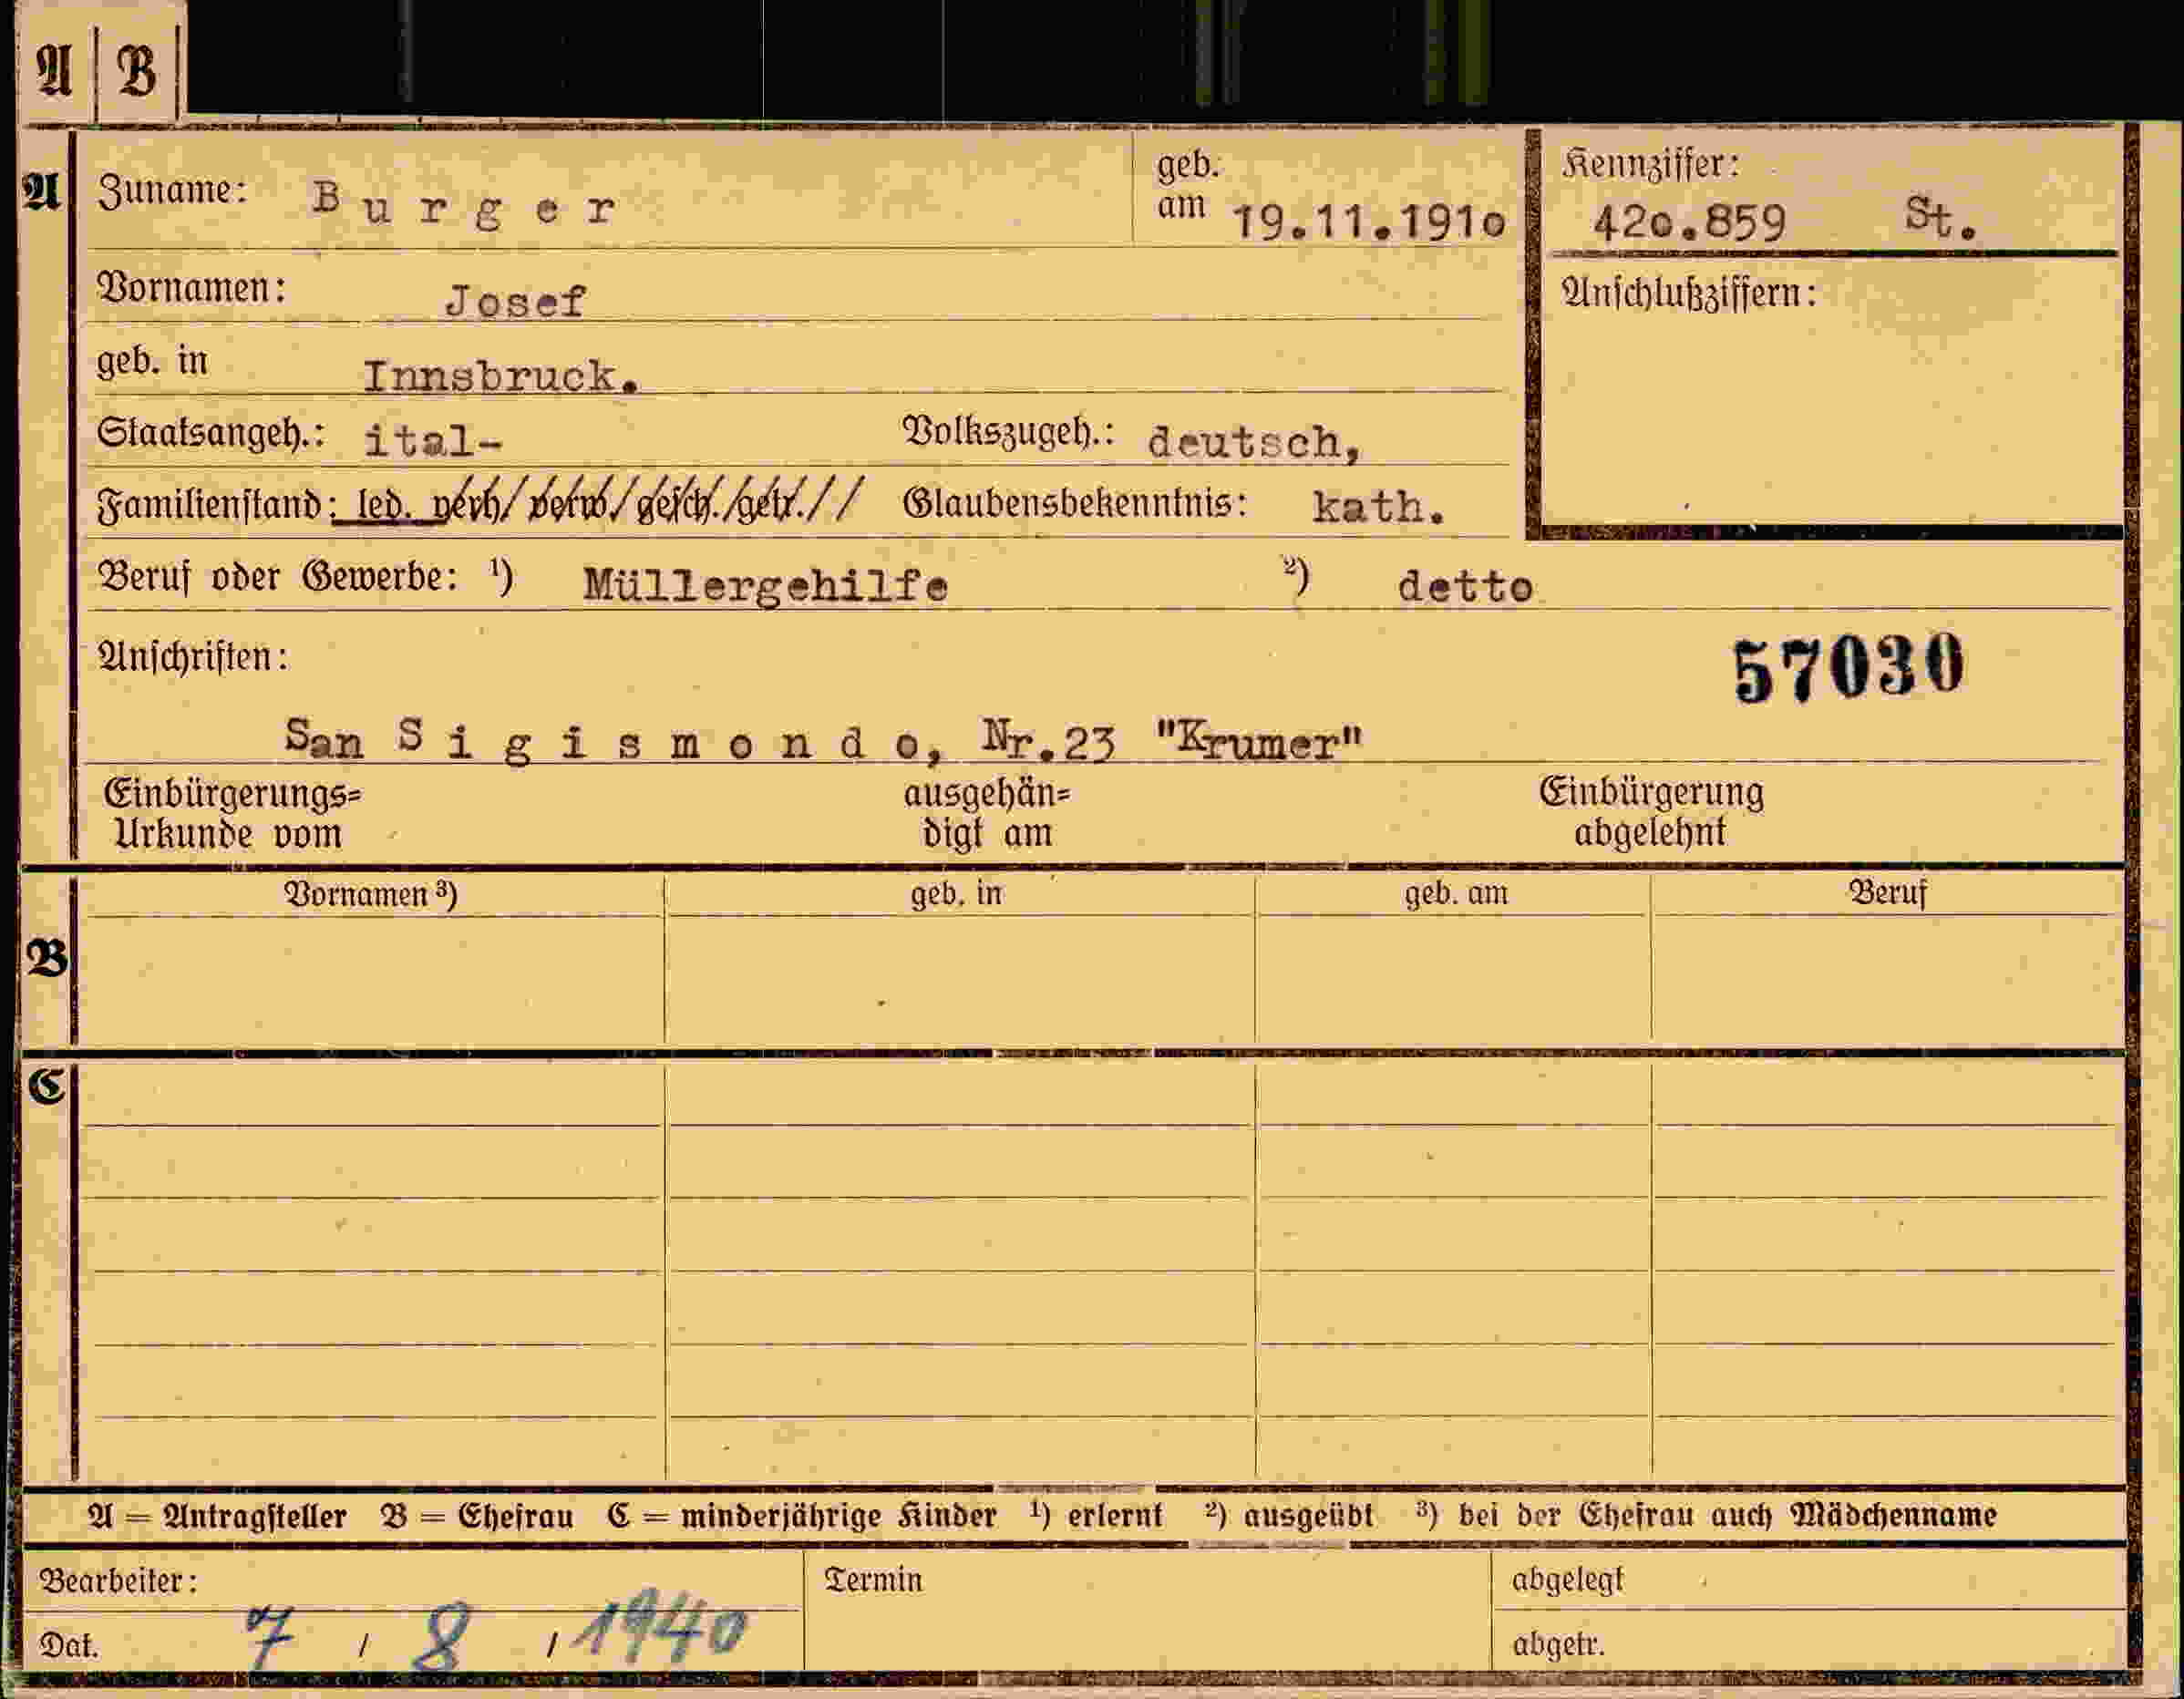 A B
A Zuname: Burger geb. am 19.11.1910 Kennziffer: 420.859 St.
Vornamen: Josef Anschlußziffern:
geb. in Innsbruck.
Staatsangeh.: ital- Volkszugeh.: deutsch,
Familienstand: led. verh/ verw/ gesch./getr.// Glaubensbekenntnis: kath.
Beruf oder Gewerbe: ¹) Müllergehilfe ²) detto
Anschriften: 57030
San Sigismondo, Nr.23 "Krumer"
Einbürgerungs= ausgehän= Einbürgerung
Urkunde vom digt am abgelehnt
Vornamen ³) geb. in geb. am Beruf
B
C
A = Antragsteller B = Ehefrau C = minderjährige Kinder ¹) erlernt ²) ausgeübt ³) bei der Ehefrau auch Mädchenname
Bearbeiter: Termin abgelegt
Dat. 7 / 8 / 1940 abgetr.